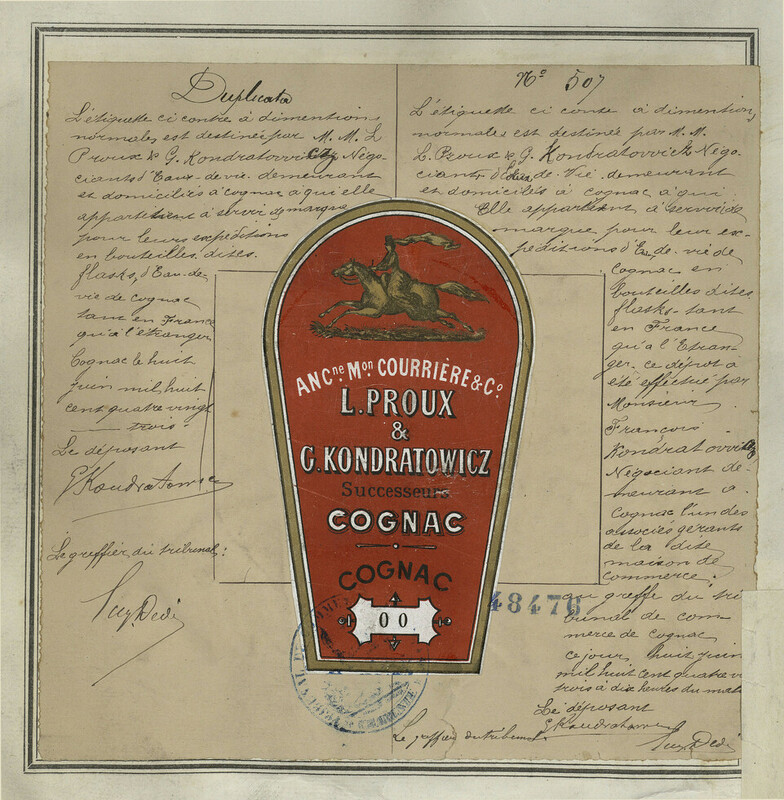 Duplicata
L'étiquette ci contre à dimentions
normales est destinée par M. M. L
Proux & G. Kondratovvicz Négo-
ciants d'Eaux-de-vie demeurant
et domiciliés à cognac à qui elle
appartient à servir de marque
pour leurs expéditions
en bouteilles, dites.
flasks, d'Eau-de-
vie de Cognac
tant en France
qu'à l'étranger
Cognac le huit
Juin mil huit
cent quatre-vingt
trois
Le déposant
G Kondratowicz
Le greffier du tribunal:
No 507
L'étiquette ci conte à dimentions
normales est destinée par M. M.
L. Proux & G. Kondratovvicz Négo-
ciants d'Eau de-Vie demeurant
et domiciliés à cognac à qui
Elle appartient à servir de
marque pour leur ex-
péditions d'Eau-de-vie de
Cognac en
bouteilles dites
flasks-tant
en France
qu'à l'Etran-
ger. ce dépot à
été effectué par
Monsieur
François
Kondratovvicz
Négociant de-
meurant à
Cognac l'un des
associés gérants
de la dite
maison de
commerce.
au greffe du tri
bunal de com
merce de Cognac
ce jour huit Juin
mil huit cent quatre v
trois à dix heures du mat
Le déposant
G Kondratowicz
Le greffier du tribunal
ANCne. Mon COURRIÈRE & Co.
L. PROUX
&
G. KONDRATOWICZ
Successeurs
COGNAC
COGNAC
00
48476